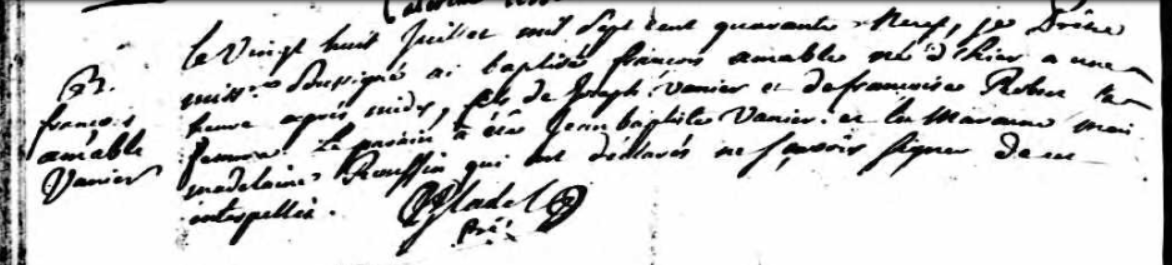 B.
françois
amable
Vanier
le vingt huit juillet mil sept cent quarante neuf, je Prêtre
miss.re soussigné ai baptisé françois amable né d'hier a une
heure après midy, fils de Joseph vanier et de françoise Robin sa
femme. Le parain a été Jean baptiste Vanier. et la Maraine Marie
madelaine Roussin qui ont déclarés ne sçavoir signer de ce
interpellés.
ptre